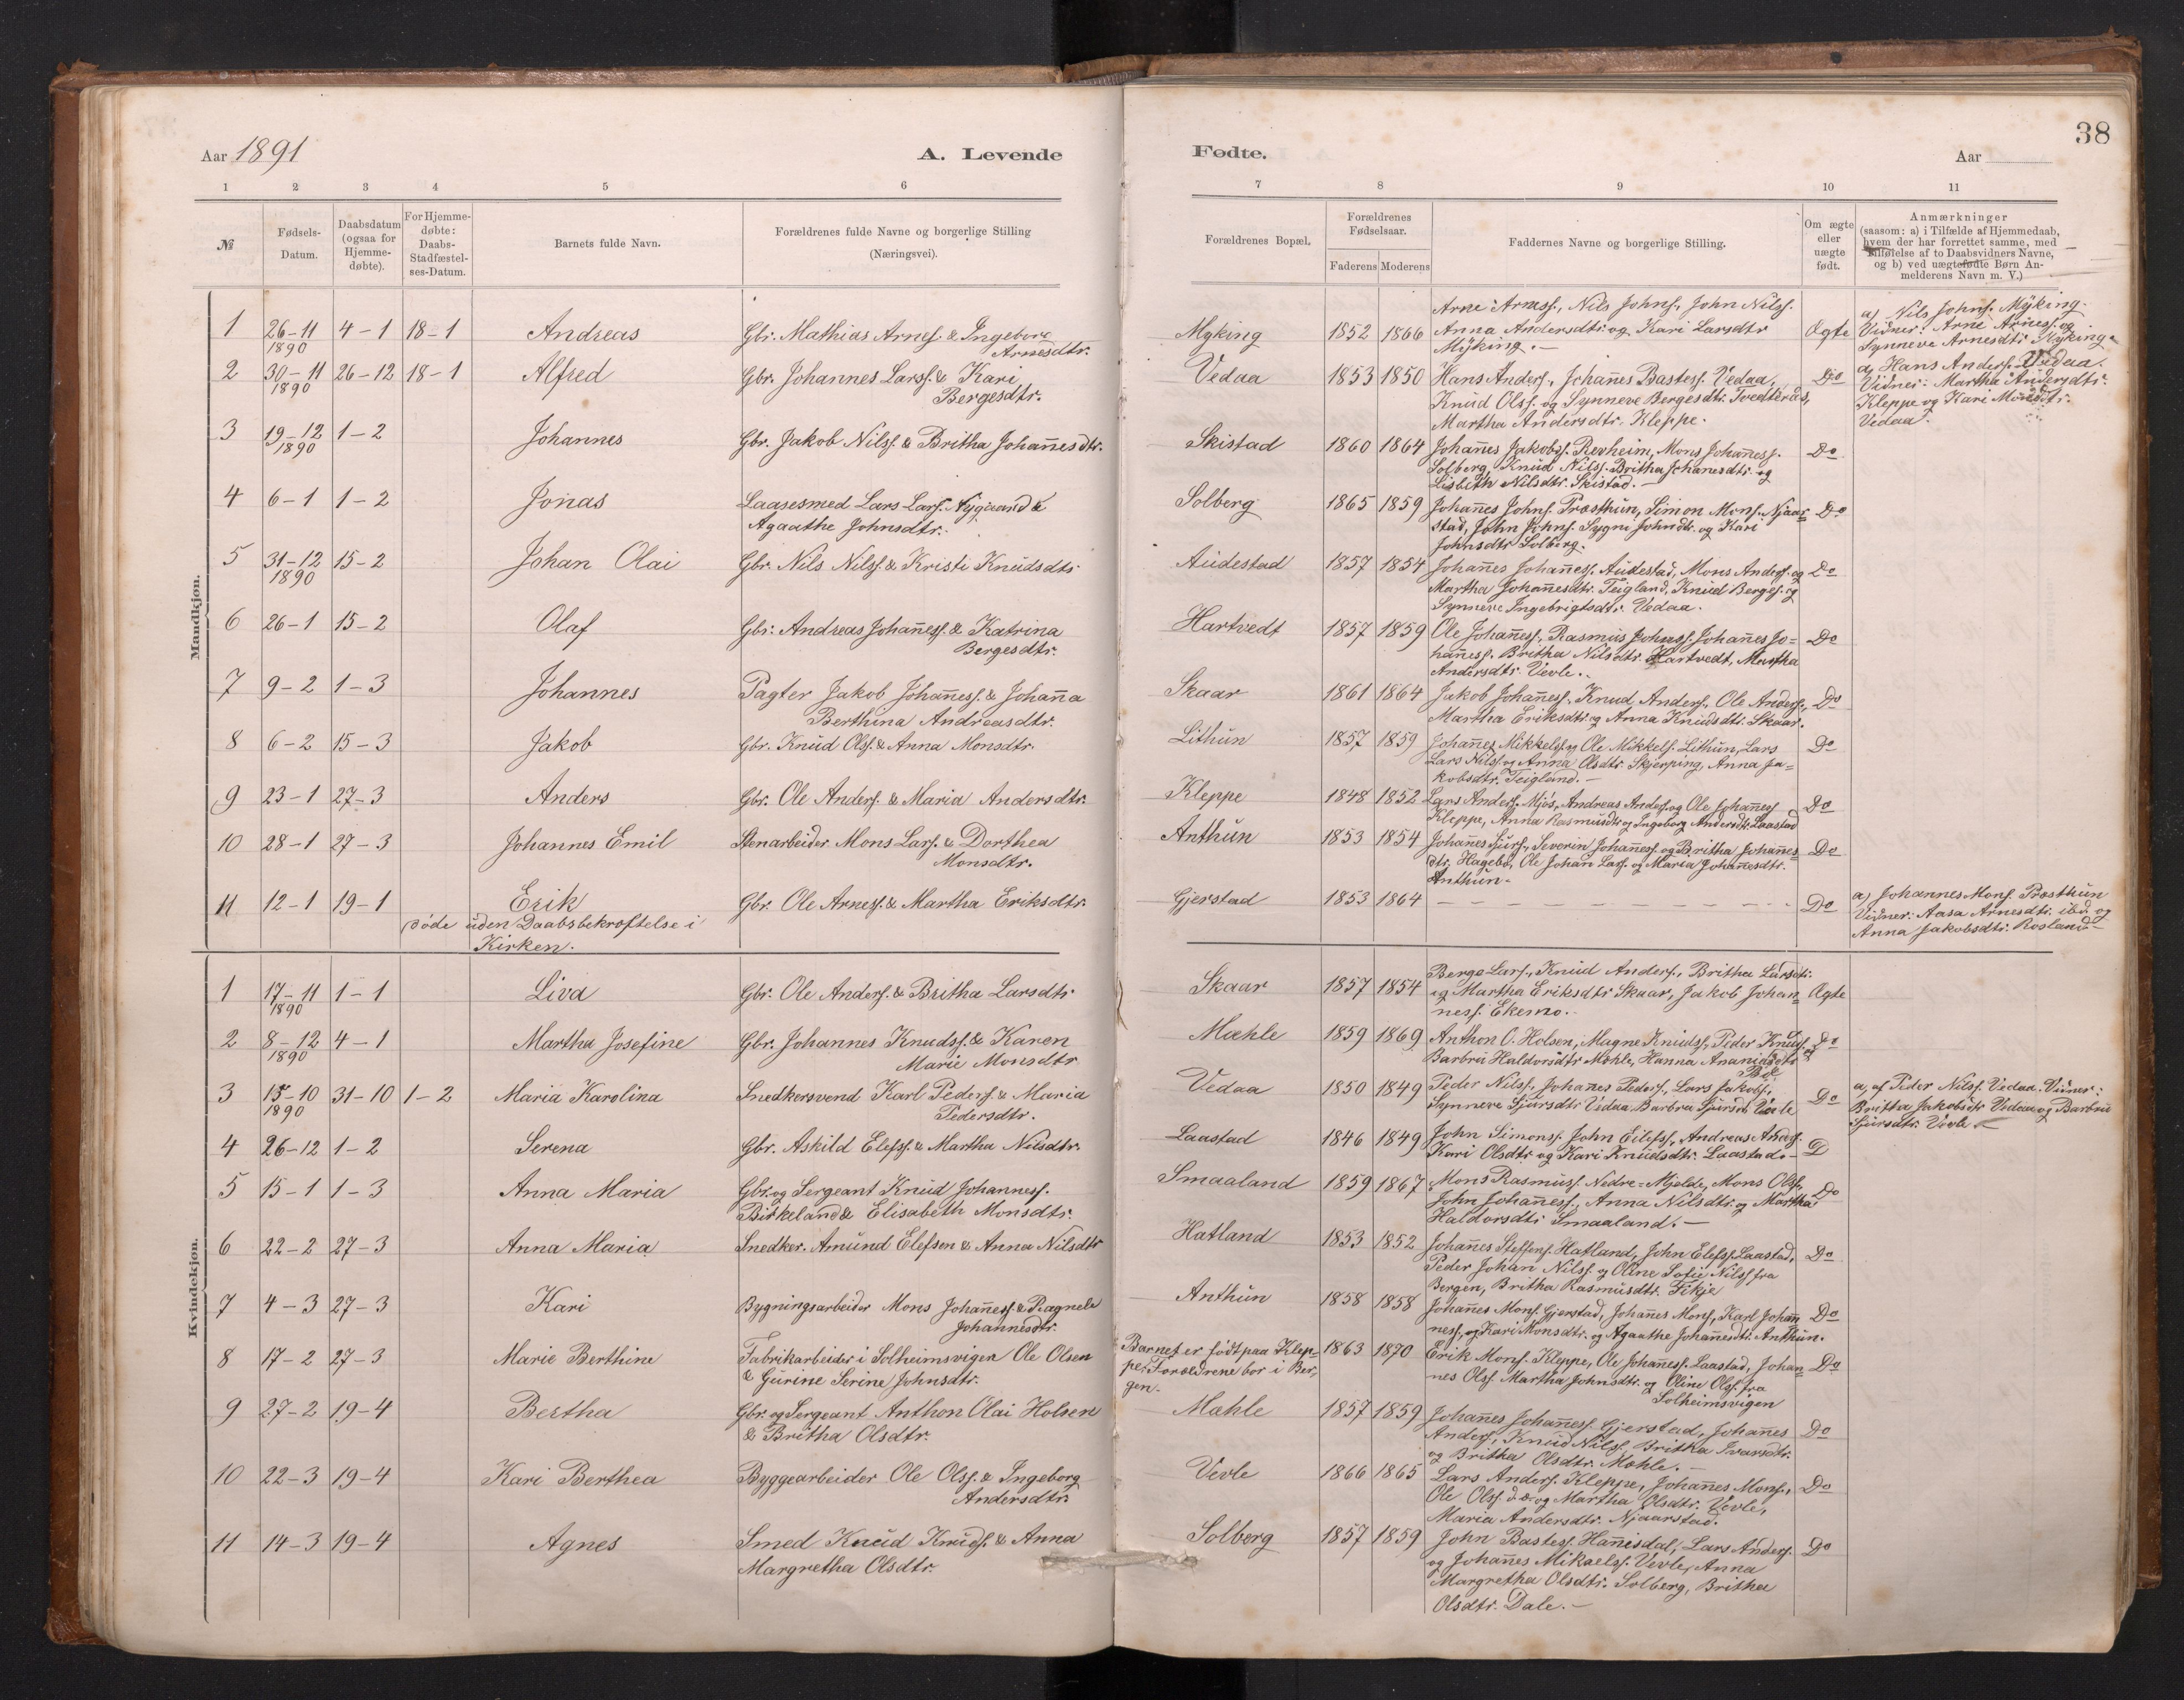 Aar 1891
A. Levende
1 2 3 4 5 6
№
Fødsels-
Datum.
Daabsdatum
(ogsaa for
Hjemme-
døbte).
For Hjemme-
døbte:
Daabs-
Stadfæstel-
ses-Datum.
Barnets fulde Navn.
Forældrenes fulde Navne og borgerlige Stilling
(Næringsvei).
Mandkjøn.
1 26-11 4-1 18-1 Andreas Gbr. Mathias Arness. & Ingeborg
1890 Arnesdtr.
2 30-11 26-12 18-1 Alfred Gbr. Johannes Larss. & Kari
1890 Bergesdtr.
3 19-12 1-2 Johannes Gbr. Jakob Nilss. & Britha Johañesdtr.
1890
4 6-1 1-2 Jonas Laasesmed Lars Larss. Nygaard &
Agaathe Johnsdtr.
5 31-12 15-2 Johan Olai Gbr. Nils Nilss. & Kristi Knudsdtr
1890
6 26-1 15-2 Olaf Gbr. Andreas Johañess. & Katrina
Bergesdtr.
7 9-2 1-3 Johannes Pagter Jakob Johañess. & Johaña
Berthina Andreasdtr.
8 6-2 15-3 Jakob Gbr. Knud Olss. & Anna Monsdtr.
9 23-1 27-3 Anders Gbr. Ole Anderss. & Maria Andersdtr.
10 28-1 27-3 Johannes Emil Stenarbeider Mons Larss. & Dorthea
Monsdtr.
11 12-1 19-1 Erik Gbr. Ole Arness. & Martha Eriksdtr.
døde uden Daabsbekræftelse i
Kirken.
Kvindekjøn.
1 17-11 1-1 Liva Gbr. Ole Anderss. & Britha Larsdtr
1890
2 8-12 4-1 Martha Josefine Gbr. Johannes Knudss. & Karen
1890 Marie Monsdtr
3 15-10 31-10 1-2 Maria Karolina Snedkersvend Karl Pederss. & Maria
1890 Pedersdtr.
4 26-12 1-2 Serena Gbr. Askild Elefss. & Martha Nilsdtr.
5 15-1 1-3 Anna Maria Gbr. og Sergeant Knud Johanness.
Birkeland & Elisabeth Monsdtr.
6 22-2 27-3 Anna Maria Snedker. Amund Elefsen & Anna Nilsdtr
7 4-3 27-3 Kari Bygningsarbeider Mons Johañess. & Ragnele
Johannesdtr.
8 17-2 27-3 Marie Berthine Fabrikarbeider i Solheimsvigen Ole Olsen
& Gurine Serine Johnsdtr.
9 27-2 19-4 Bertha Gbr. og Sergeant Anthon Olai Holsen
& Britha Olsdtr.
10 22-3 19-4 Kari Berthea Byggearbeider Ole Olss. & Ingeborg
Andersdtr.
11 14-3 19-4 Agnes Smed Knud Knuds. & Anna
Margretha Olsdtr.
38
Fødte.
Aar
7 8 9 10 11
Forældrenes Bopæl.
Forældrenes
Fødselsaar.
Faderens Moderens
Faddernes Navne og borgerlige Stilling.
Om ægte
eller
uægte
født.
Anmærkninger
(saasom: a) i Tilfælde af Hjemmedaab,
hvem der har forrettet samme, med
Tilføielse af to Daabsvidners Navne,
og b) ved uægtefødte Børn An-
melderens Navn m. V.)
Arne Arness., Nils Johns., John Nilss.
Myking 1852 1866 Anna Andersdtr. og Kari Larsdtr Ægte
Myking.
a) Nils Johns. Myking.
Vidner: Arne Arness. og
Synneve Arnesdtr. Myking.
Vedaa 1853 1850 Hans Anders., Johañes Bastess. Vedaa, Do
Knud Olss. og Synneve Bergesdtr. Tvedteraas,
Martha Andersdtr. Kleppe.
a, Hans Anderss. Vedaa.
Vidner: Martha Andersdtr.
Kleppe og Kari Monsdtr.
Vedaa.
Skistad 1860 1864 Johañes Jakobss. Revheim, Mons Johañess. Do
Solberg, Knud Nilss. Britha Johañesdtr. og
Lisbith Nilsdtr. Skistad.
Solberg 1865 1859 Johañes Johns. Præsthun, Simon Mons. Njaar- Do
stad, John Johns. Sygni Johndtr. og Kari
Johnsdtr Solberg.
Audestad 1857 1854 Johañes Johañess. Audestad, Mons Anders. og Do
Martha Johañesdtr. Teigland, Knud Berges. og
Synneve Ingebrigtsdtr. Vedaa.
Hartvedt 1857 1859 Ole Johañess., Rasmus Johnss. Johañes Jo= Do
hañess. Britha Nilsdtr. Hartvedt, Martha
Andersdtr. Vevle.
Skaar 1861 1864 Jakob Johañess., Knud Anders., Ole Anders., Do
Martha Eriksdtr. og Anna Knudsdtr. Skaar.
Lithun 1857 1859 Johañes Mikkels. og Ole Mikkels. Lithun, Lars Do
Lars Nilss. og Anna Olsdtr. Skjerping, Anna Ja=
kobsdtr. Teigland.
Kleppe 1848 1852 Lars Anders. Mjøs, Andreas Anders. og Ole Johañess Do
Kleppe, Anna Rasmusdtr. og Ingeborg Andersdtr. Laastad
Anthun 1853 1854 Johañes Sjurs., Severin Johañess. og Britha Johañes- Do
dtr. Hagebø, Ole Johan Lars. og Maria Johañesdtr.
Anthun.
Gjerstad 1853 1864 Do
a) Johannes Mons. Præsthun
Vidner: Aasa Arnesdtr. ibd. og
Anna Jakobsdtr. Rosland
Berge Lars., Knud Anders., Britha Larsdtr.
Skaar 1857 1854 og Martha Eriksdtr Skaar, Jakob Johan= Ægte
ness. Ekemo.
Mæhle 1859 1869 Anthon O. Holsen, Magne Knudss., Peder Knuds. Do
Barbra Haldorsdtr Mæhle, Hanna
Vedaa 1850 1849 Peder Nilss., Johañes Peders., Lars Jakobs., Do
Synneve Sjursdtr Vedaa, Barbra Sjursdt. Vevle
a, af Peder Nilss. Vedaa. Vidner:
Britha Jakobsdtr Vedaa, og Barbra
Sjursdtr. Vevle
Laastad 1846 1849 John Simons. John Eilefss., Andreas Anders. D
Kari Olsdtr og Kari Knudsdtr. Laastad.
Smaaland 1859 1867 Mons Rasmuss. Nedre=Mjelde, Mons Olss., Do
John Johañess., Anna Nilsdtr. og Martha
Haldorsdtr Smaaland.
Hatland 1853 1852 Johañes Steffens. Hatland, John Elefss. Laastad, Do
Peder Johan Nilss. og Oline Sofie Nilss fra
Bergen, Britha Rasmusdtr. Fikje
Anthun 1858 1858 Johañes Mons. Gjerstad, Johañes Mons., Karl Johañ Do
ness., og Kari Monsdtr. og Agaathe Johañesdtr. Anthun.
Barnet er født paa Klep- 1863 1870 Erik Mons. Kleppe, Ole Johañess. Laastad, Johan= Do
pe. Forældrene bor i Ber- nes Olss. Martha Johnsdtr. og Oline Olss. fra
gen. Solheimsvigen
Mæhle 1857 1859 Johañes Johañess. Gjerstad, Johañes Do
Anders., Knud Nilss., Britha Ivarsdtr.
og Britha Olsdtr. Mæhle.
Vevle 1866 1865 Lars Anders. Kleppe, Johañes Mons., Do
Ole Olss. og Martha Olsdtr. Vevle,
Maria Andersdtr. Njaarstad.
Solberg 1857 1859 John Bastess. Hañisdal, Lars Anders. Do
og Johañes Mikaels. Vevle, Anna
Margretha Olsdtr. Solberg, Britha
Olsdtr. Dale.